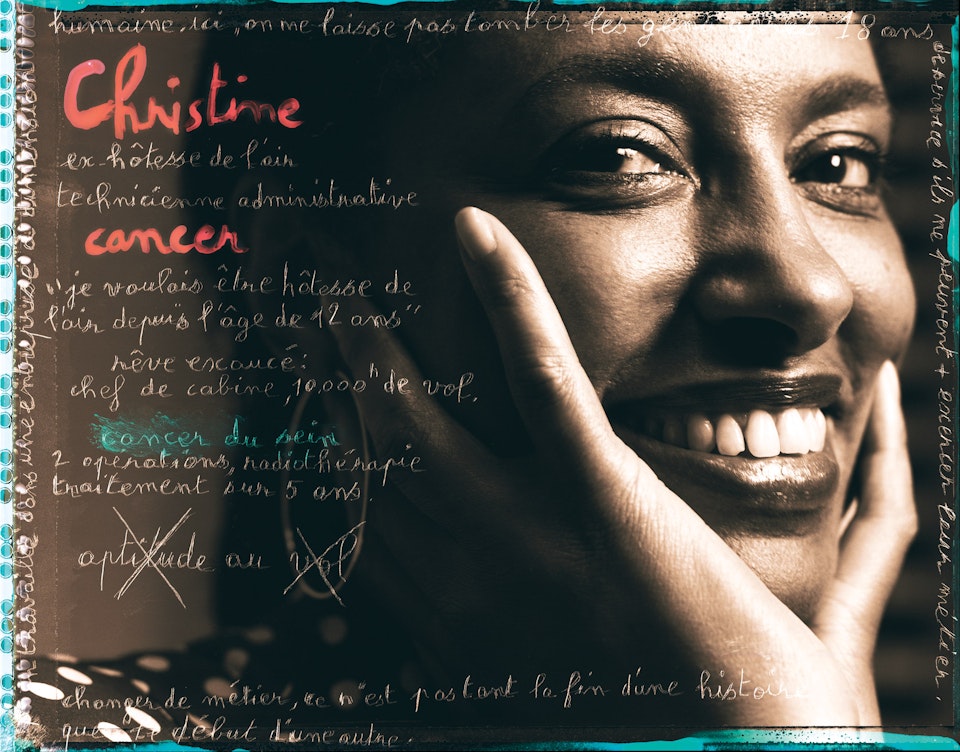 Christine
ex-hôtesse de l'air
technicienne administrative
cancer
"je voulais être hôtesse de
l'air depuis l'âge de 12 ans"
rêve exaucé:
chef de cabine, 10.000h de vol.
cancer du sein
2 opérations, radiothérapie
traitement sur 5 ans.
aptitude au vol
changer de métier, ce n'est pas tant la fin d'une histoire
que le début d'une autre.
travailler dans une entreprise à dimension
humaine. ici, on me laisse pas tomber les gens 18 ans
de service s'ils ne peuvent + exercer leur métier.